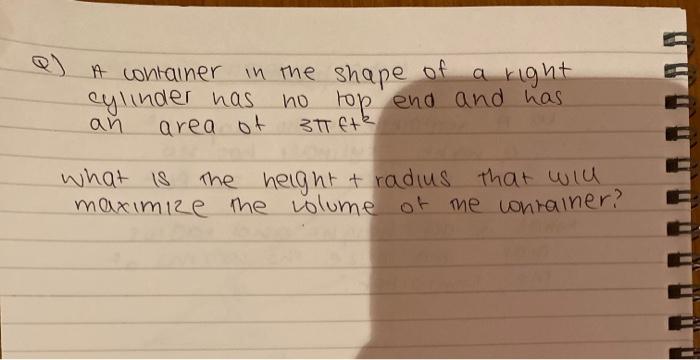 Q) A container in the shape of a right
cylinder has no top end and has
an area of 3π ft²
what is the height + radius that will
maximize the volume of the container?